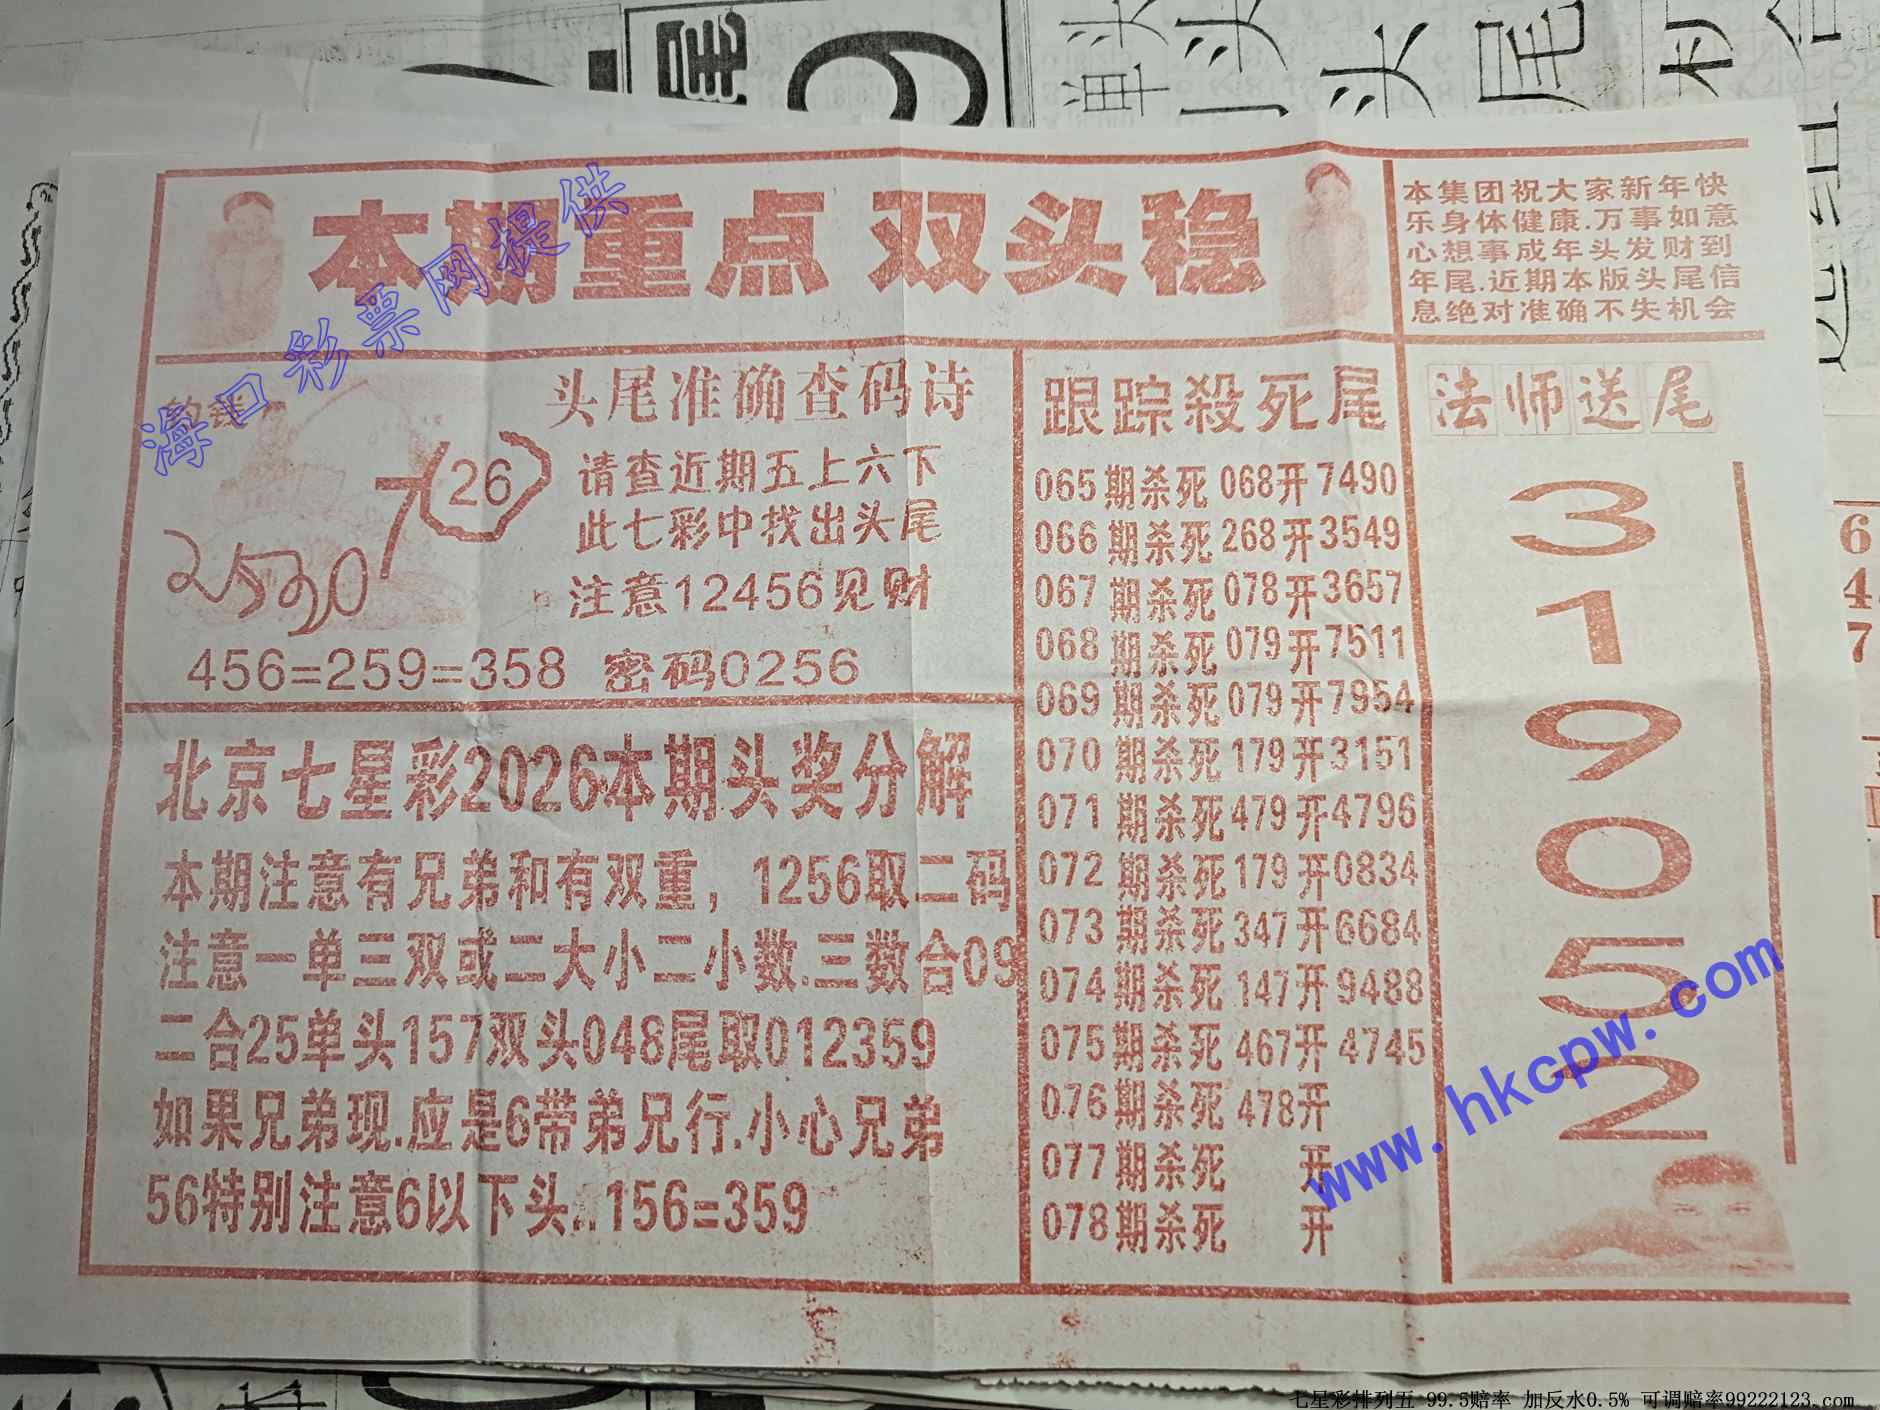 本期重点 双头稳
本集团祝大家新年快
乐身体健康.万事如意
心想事成年头发财到
年尾.近期本版头尾信
息绝对准确不失机会
海口彩票网提供
头尾准确查码诗
26
请查近期五上六下
此七彩中找出头尾
注意12456见财
456=259=358 密码0256
北京七星彩2026本期头奖分解
本期注意有兄弟和有双重，1256取二码
注意一单三双或二大小二小数.三数合09
二合25单头157双头048尾取012359
如果兄弟现.应是6带弟兄行.小心兄弟
56特别注意6以下头..156=359
跟踪殺死尾
065期杀死068开7490
066期杀死268开3549
067期杀死078开3657
068期杀死079开7511
069期杀死079开7954
070期杀死179开3151
071期杀死479开4796
072期杀死179开0834
073期杀死347开6684
074期杀死147开9488
075期杀死467开4745
076期杀死478开
077期杀死 开
078期杀死 开
法师送尾
3
1
9
0
5
2
www.hkcpw.com
6
4
7
七星彩排列五 99.5赔率 加反水0.5% 可调赔率99222123.com